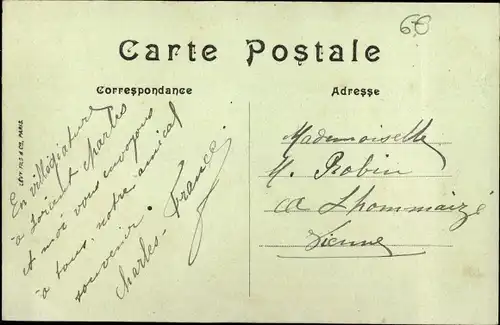 6€
Carte Postale
Correspondance
Adresse
LÉVY FILS & CIE, PARIS
En villégiature
à Lorient Charles
et moi vous envoyons
à tous, notre amical
souvenir.
Charles - France.
Mademoiselle
M. Robin
à Lhommaizé
Vienne